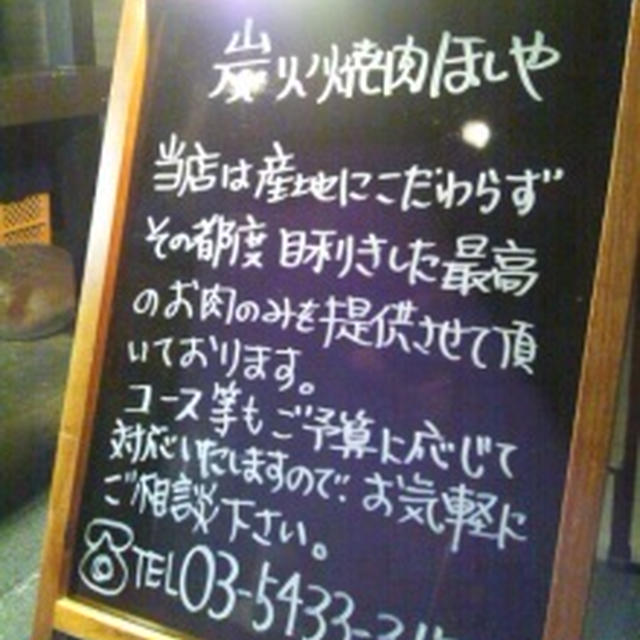 炭火焼肉ほしや
当店は産地にこだわらず
その都度目利きした最高
のお肉のみを提供させて頂
いております。
コース等もご予算に応じて
対応いたしますので、お気軽に
ご相談下さい。
TEL03-5433-